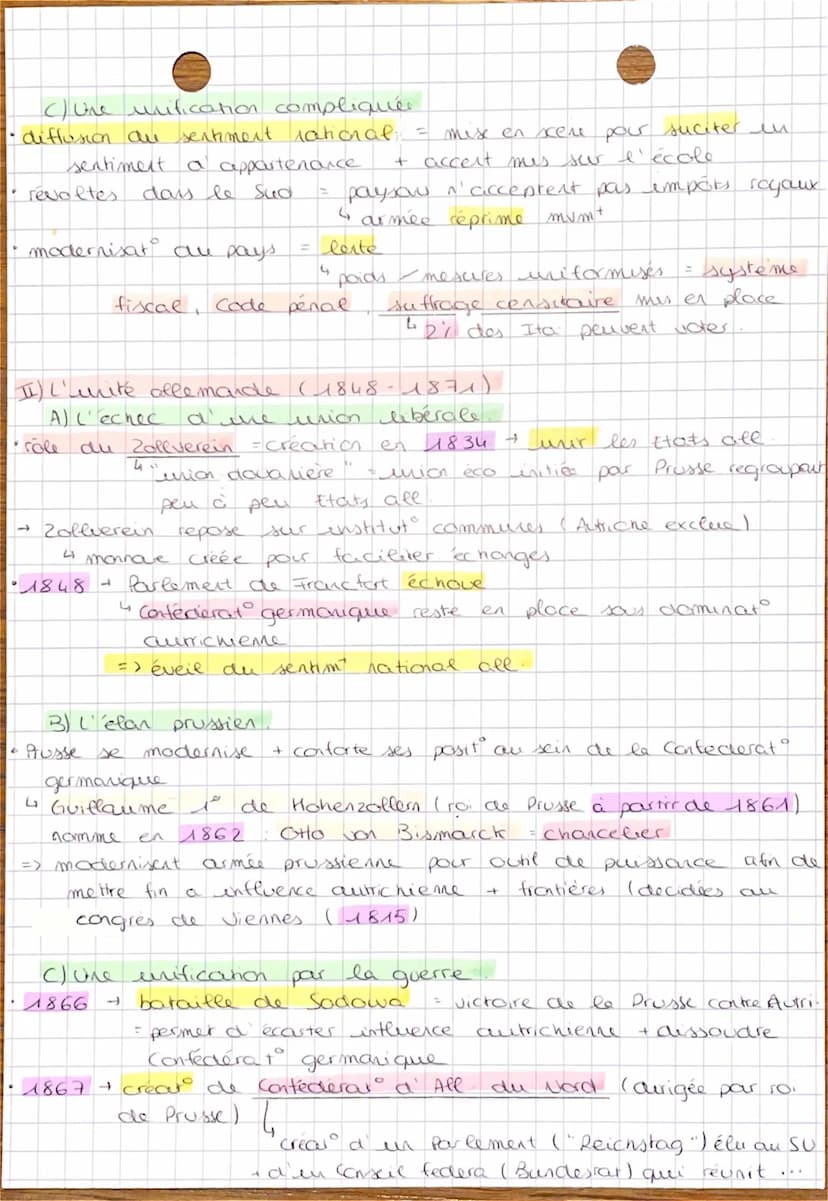 C) Une unification compliquée
• diffusion du sentiment national = mise en scène pour suciter un
sentiment d'appartenance + accent mis sur l'école
• révoltes dans le Sud = paysans n'acceptent pas impôts royaux
↳ armée réprime mvmt
• modernisat° du pays = lente
↳ poids / mesures uniformisés = système
fiscal, Code pénal, suffrage censitaire mis en place
↳ 2% des Ita. peuvent voter.
II) L'unité allemande (1848-1871)
A) L'échec d'une union libérale.
• rôle du Zollverein = création en 1834 → unir les Etats all.
↳ "union douanière" = union éco initiée par Prusse regroupant
peu à peu Etats all.
→ Zollverein repose sur institut° communes (Autriche exclue)
↳ monnaie créée pour faciliter échanges
• 1848 → Parlement de Francfort échoue
↳ Confédérat° germanique reste en place sous dominat°
autrichienne
=> éveil du sentimt national all.
B) L'élan prussien.
• Prusse se modernise + conforte ses posit° au sein de la Confédérat°
germanique
↳ Guillaume 1er de Hohenzollern (roi de Prusse à partir de 1861)
nomme en 1862 : Otto von Bismarck = chancelier
=> modernisent armée prussienne pour outil de puissance afin de
mettre fin à influence autrichienne + frontières (décidées au
congrès de Viennes (1815)
C) Une unification par la guerre.
• 1866 → bataille de Sadowa = victoire de la Prusse contre Autri.
= permet d'écarter influence autrichienne + dissoudre
Confédérat° germanique
• 1867 → créat° de Confédérat° d'All du Nord (dirigée par roi
de Prusse)
↳ créat° d'un Parlement ("Reichstag") élu au SU
+ d'un Conseil fédéra (Bundesrat) qui réunit ...